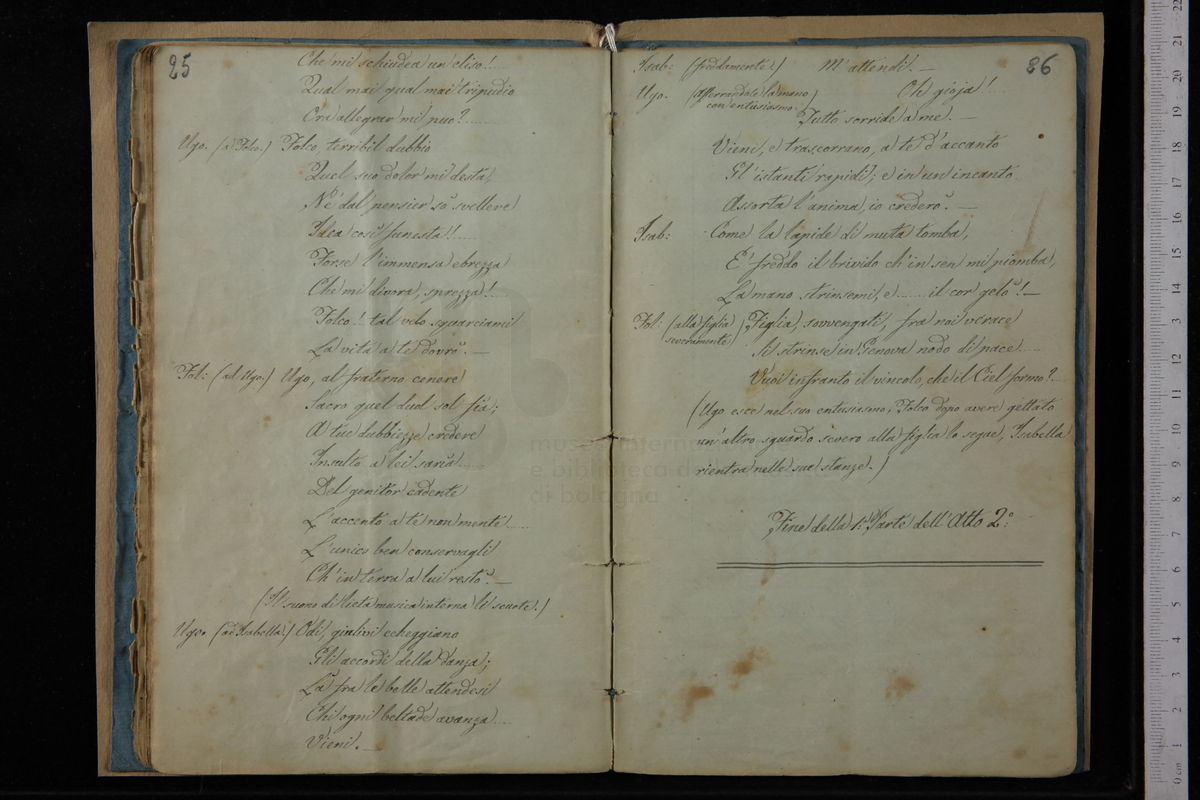 25
Che mi schiudea un eliso!....
Qual mai qual mai tripudio
Ora allegrar mi può?......
Ugo. (a Folco.) Folco, terribil dubbio
Quel suo dolor mi desta,
Nè dal pensier sò svellere
Idea così funesta!!....
Forse l'immensa ebrezza
Che mi divora, sprezza!..
Folco! tal velo squarciami
La vita a te dovrò. —
Fol: (ad Ugo.) Ugo, al fraterno cenere
Sacro quel duol sol fia;
A tue dubbiezze credere
Insulto a lei saria.....
Del genitor cadente
L'accento a te non mente.....
L'unico ben conservagli
Ch'in terra a lui restò. —
(Il suono di lieta musica interna li scuote.)
Ugo. (ad Isabella.) Odi, giulivi echeggiano
Gli accordi della danza;
Là fra le belle attendesi
Chi ogni beltade avanza....
Vieni. —
26
Isab: (freddamente.) M'attendi. —
Ugo. (afferrandole la mano con entusiasmo.) Oh gioja!....
Tutto sorride a me. —
Vieni, e trascorrano, a te d'accanto
Gl'istanti rapidi; e in un incanto
Assorta l'anima, io crederò. —
Isab: Come la lapide di muta tomba,
E' freddo il brivido ch'in sen mi piomba,
La mano strinsemi, e ...... il cor gelò! —
Fol: (alla figlia severamente) Figlia, sovvengati, fra noi verace
Si strinse in Genova nodo di pace....
Vuoi infranto il vincolo, che il Ciel formò?..
(Ugo esce nel suo entusiasmo, Folco dopo avere gettato
un'altro sguardo severo alla figlia lo segue, Isabella
rientra nelle sue stanze.)
Fine della 1ª Parte dell'Atto 2º:
museo internaz
e biblioteca della
di bologna